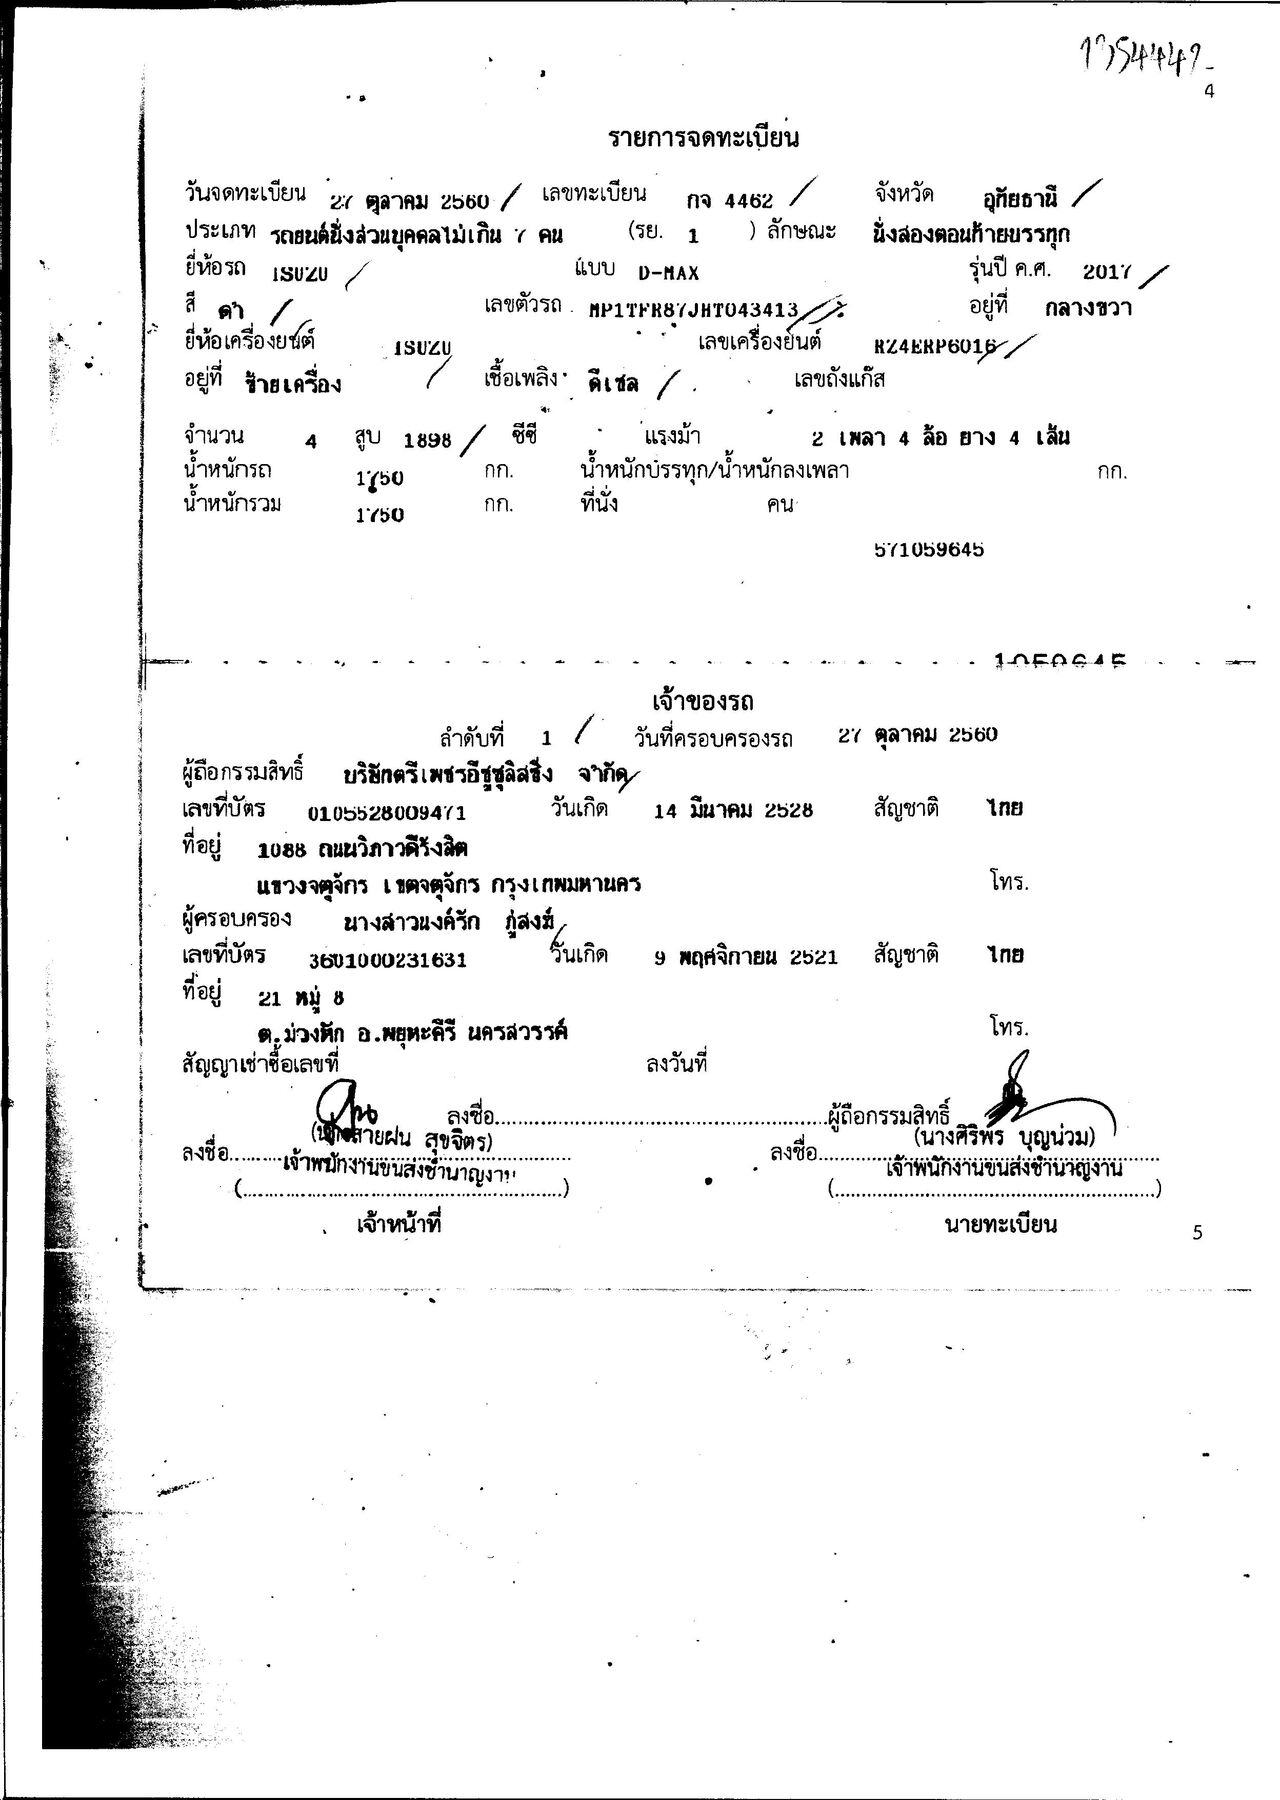 4
รายการจดทะเบียน
วันจดทะเบียน 27 ตุลาคม 2560 เลขทะเบียน กจ 4462 จังหวัด อุทัยธานี
ประเภท รถยนต์นั่งส่วนบุคคลไม่เกิน 7 คน (รย. 1 ) ลักษณะ นั่งสองตอนท้ายบรรทุก
ยี่ห้อรถ ISUZU แบบ D-MAX รุ่นปี ค.ศ. 2017
สี ดำ เลขตัวรถ MP1TFR87JHT043413 อยู่ที่ กลางขวา
ยี่ห้อเครื่องยนต์ ISUZU เลขเครื่องยนต์ RZ4ERP6016
อยู่ที่ ซ้ายเครื่อง เชื้อเพลิง ดีเซล เลขถังแก๊ส
จำนวน 4 สูบ 1898 ซีซี แรงม้า 2 เพลา 4 ล้อ ยาง 4 เส้น
น้ำหนักรถ 1750 กก. น้ำหนักบรรทุก/น้ำหนักลงเพลา กก.
น้ำหนักรวม 1750 กก. ที่นั่ง คน
571059645
1059645
เจ้าของรถ
ลำดับที่ 1 วันที่ครอบครองรถ 27 ตุลาคม 2560
ผู้ถือกรรมสิทธิ์ บริษัทตรีเพชรอีซูซุลิสซิ่ง จำกัด
เลขที่บัตร 0105528009471 วันเกิด 14 มีนาคม 2528 สัญชาติ ไทย
ที่อยู่ 1088 ถนนวิภาวดีรังสิต
แขวงจตุจักร เขตจตุจักร กรุงเทพมหานคร โทร.
ผู้ครอบครอง นางสาวนงค์รัก ภู่สงฆ์
เลขที่บัตร 3601000231631 วันเกิด 9 พฤศจิกายน 2521 สัญชาติ ไทย
ที่อยู่ 21 หมู่ 8
ต.ม่วงหัก อ.พยุหะคีรี นครสวรรค์ โทร.
สัญญาเช่าซื้อเลขที่ ลงวันที่
ลงชื่อ........................................ผู้ถือกรรมสิทธิ์
สายฝน สุขจิตร) (นางศิริพร บุญน่วม)
ลงชื่อ........................................ ลงชื่อ........................................
เจ้าพนักงานขนส่งชำนาญงาน เจ้าพนักงานขนส่งชำนาญงาน
(........................................) (........................................)
เจ้าหน้าที่ นายทะเบียน
5